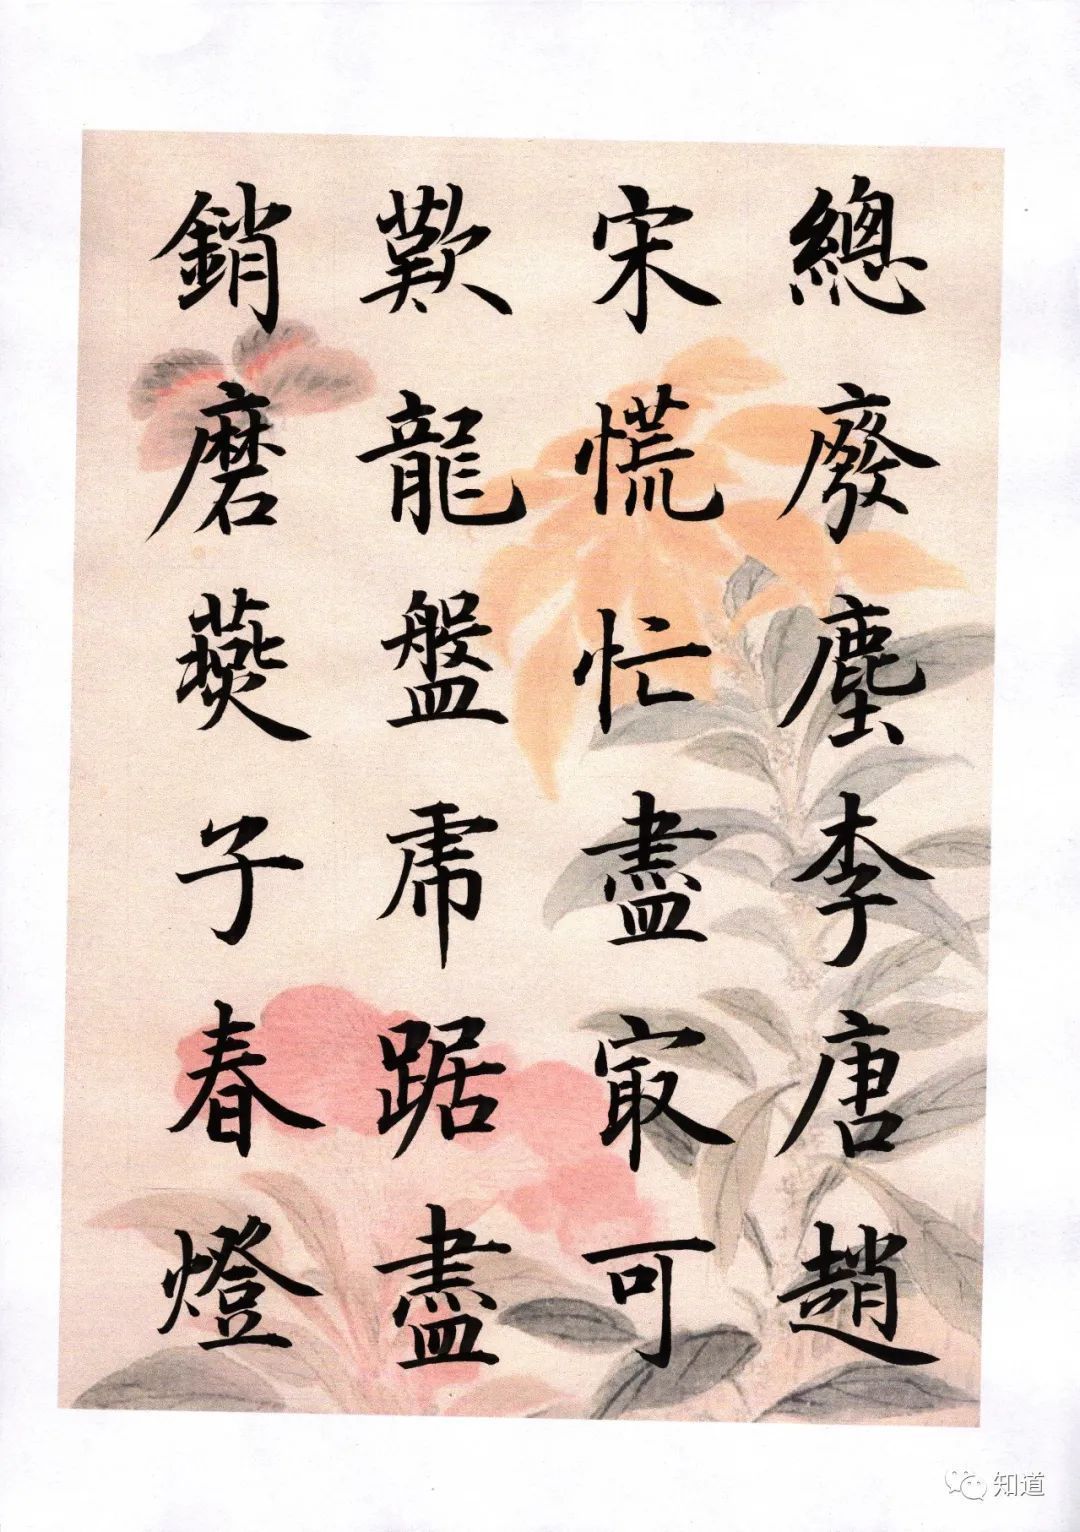 總廢塵李唐趙
宋慌忙盡冣可
歎龍盤虎踞盡
銷磨燕子春燈
知道